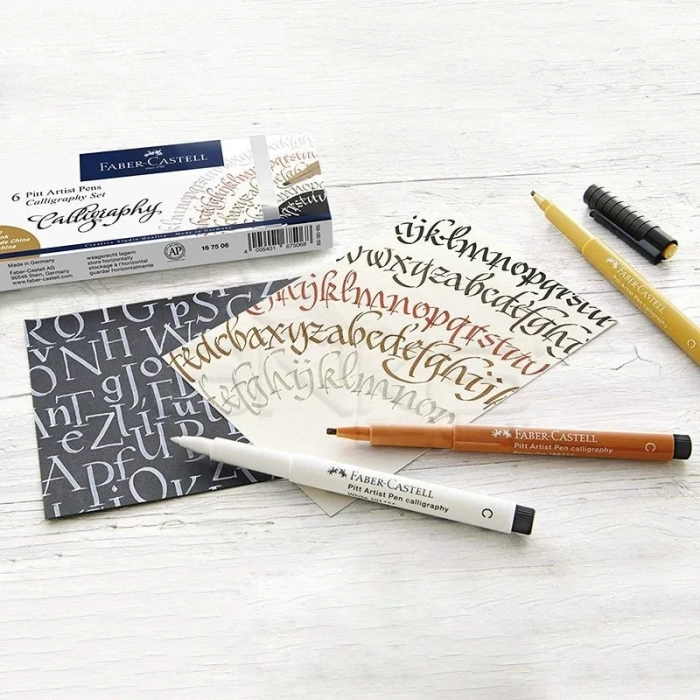 FABER-CASTELL
SINCE 1761
6 Pitt Artist Pens
Calligraphy Set
Calligraphy
Creative Studio Quality
Made in Germany
Faber-Castell AG
90546 Stein, Germany
www.faber-castell.com
waagerecht lagern
store horizontally
stockage à l'horizontale
guardar horizontalmente
AP
16 75 06
4 005401 675068
ijklmnopqrstu
vwxyzabcdefghij
hijklmnopqrstuv
edcbaxyzabcdefghijk
efghijklmnop
FABER-CASTELL
Pitt Artist Pen calligraphy
FABER-CASTELL
Pitt Artist Pen calligraphy
C
FABER-CASTELL
Pitt Artist Pen calligraphy
White 101 ***
C